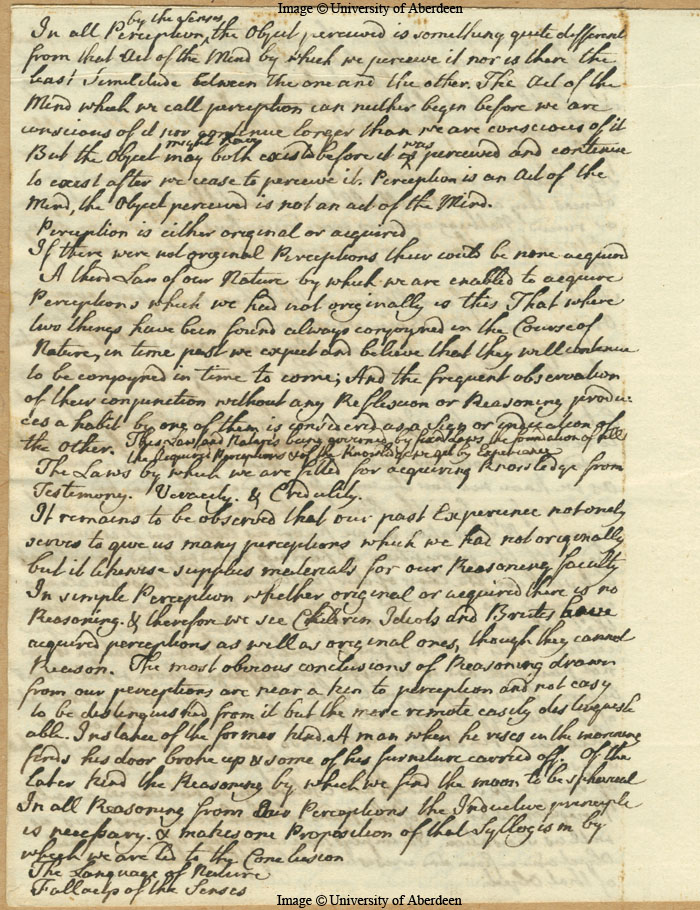 Image © University of Aberdeen
by the Senses
In all Perception, the Object perceived is something quite different
from that Act of the Mind by which we perceive it nor is there the
least Similitude between the one and the other. The Act of the
Mind which we call perception can neither begin before we are
conscious of it nor continue longer than we are conscious of it
might have was
But the Object may both exist before it is perceived and continue
to exist after we cease to perceive it. Perception is an Act of the
Mind, the Object perceived is not an act of the Mind.
Perception is either original or acquired
If there were not original Perceptions there would be none acquired
A third Law of our Nature by which we are enabled to acquire
Perceptions which we had not originally is this That where
two things have been found always conjoyned in the Course of
Nature, in time past we expect and believe that they will continue
to be conjoyned in time to come; And the frequent observation
of their conjunction without any Reflexion or Reasoning produ
ces a habit by one of them is considered as a Sign or indication of
the other. This Law and Natures being governed by fixed Laws the foundation of all
the Acquired Perceptions & of the Knowledge we get by Experience
The Laws by which we are fitted for acquiring Knowledge from
Testimony. Veracity. & Credulity.
It remains to be observed that our past Experience not onely
serves to give us many perceptions which we had not originally
but it likewise supplies materials for our Reasoning faculty
In simple Perception whether original or acquired there is no
Reasoning. & therefore we see Children Idiots and Brutes have
acquired perceptions as well as original ones, though they cannot
Reason. The most obvious conclusions of Reasoning drawn
from our perceptions are near a kin to perception and not easy
to be distinguished from it but the more remote easily distinguish
able. Instance of the former kind. A man when he rises in the morning
finds his door broke up & some of his furniture carried off. Of the
later kind the Reasoning by which we find the moon to be spherical
In all Reasoning from Our Perceptions the Inductive principle
is necessary. & makes one Proposition of that Syllogism by
which we are led to the Conclusion
The Language of Nature
Fallacys of the Senses
Image © University of Aberdeen